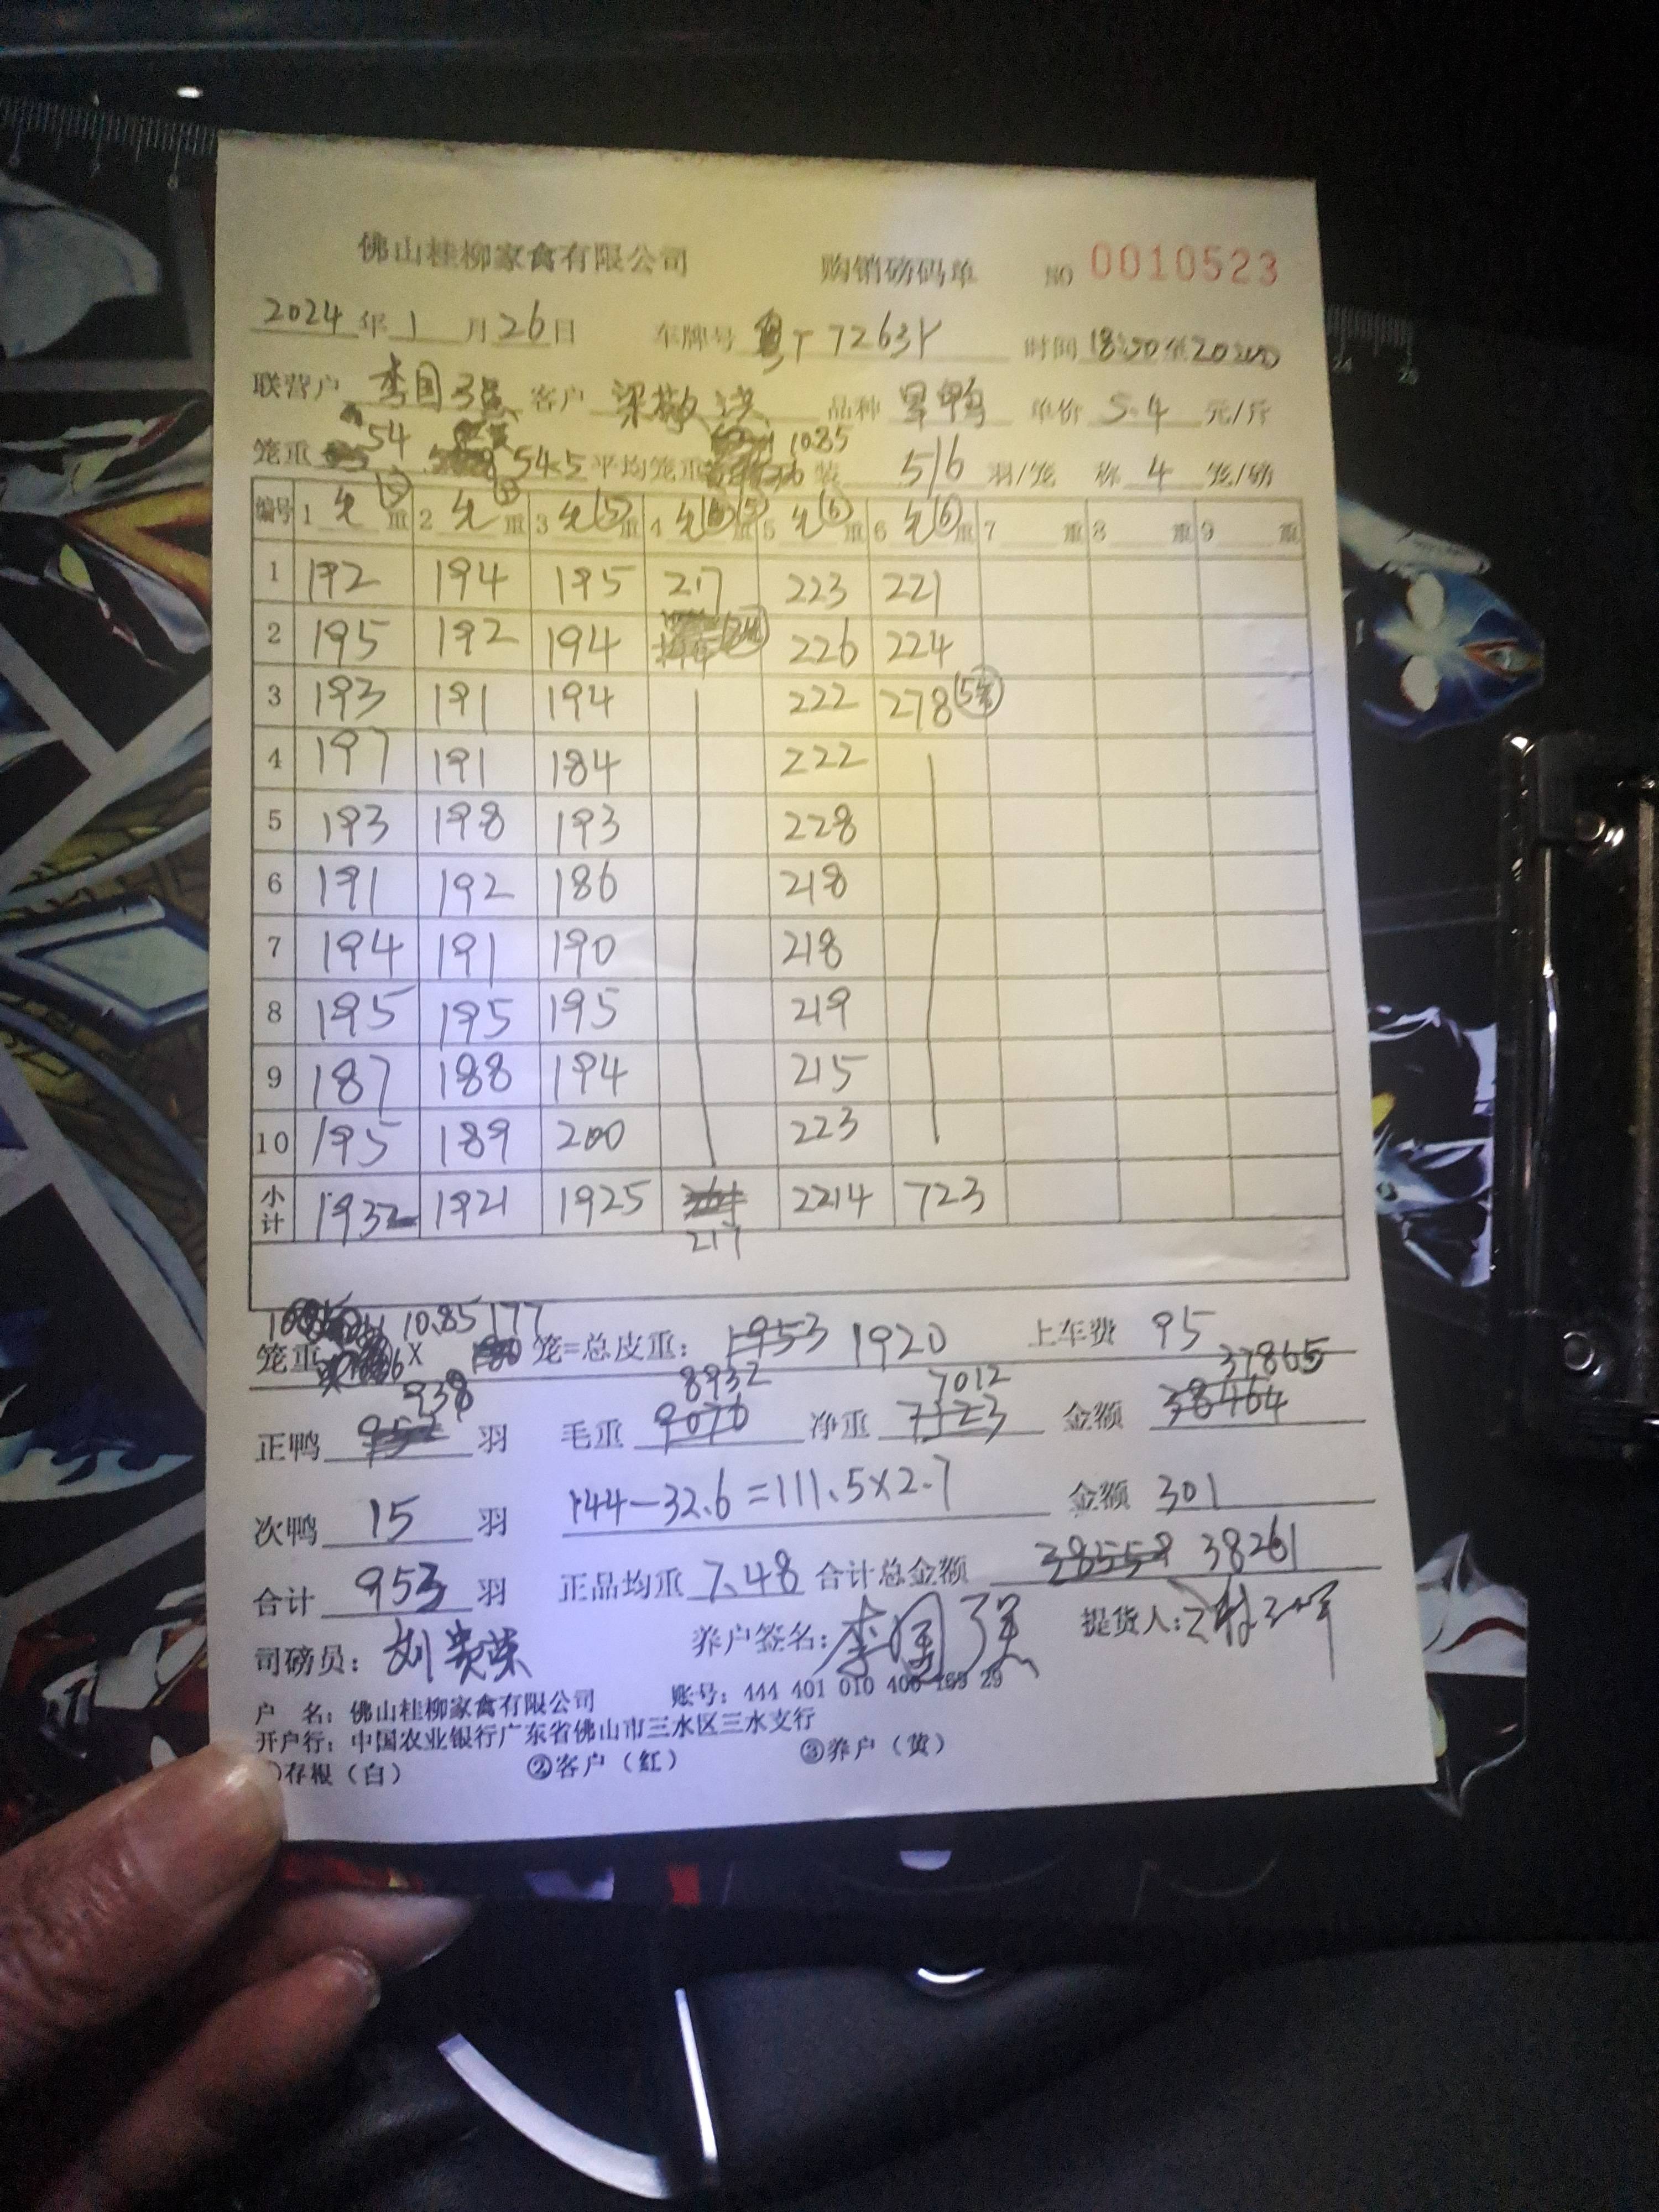 佛山桂柳家禽有限公司 购销磅码单 NO 0010523
2024年1月26日 车牌号 粤T7263Y 时间
联营户 李国强 客户 梁敬 品种 单价 5.4 元/斤
笼重 54 54.5 平均笼重 10.85 装 5/6 羽/笼 称 4 笼/磅
编号 1 ⑤ 重 2 ⑤ 重 3 ⑤ 重 4 重 5 ⑥ 重 6 ⑥ 重 7 重 8 重 9 重
1 192 194 195 217 223 221
2 195 192 194 226 224
3 193 191 194 222 278
4 197 191 184 222
5 193 198 193 228
6 191 192 186 218
7 194 191 190 218
8 195 195 195 219
9 187 188 194 215
10 195 189 200 223
小计 1932 1921 1925 217 2214 723
笼重 10.85 × 177 笼=总皮重: 1953 1920 上车费 95
938 8932 7012 37865
正鸭 羽 毛重 9076 净重 7123 金额 38464
次鸭 15 羽 144-32.6=111.5×2.7 金额 301
合计 953 羽 正品均重 7.48 合计总金额 38559 38261
司磅员: 刘 荣 养户签名: 李国强 提货人:
户 名: 佛山桂柳家禽有限公司 账号: 444 401 010 400 169 29
开户行: 中国农业银行广东省佛山市三水区三水支行
存根(白) ②客户(红) ③养户(黄)